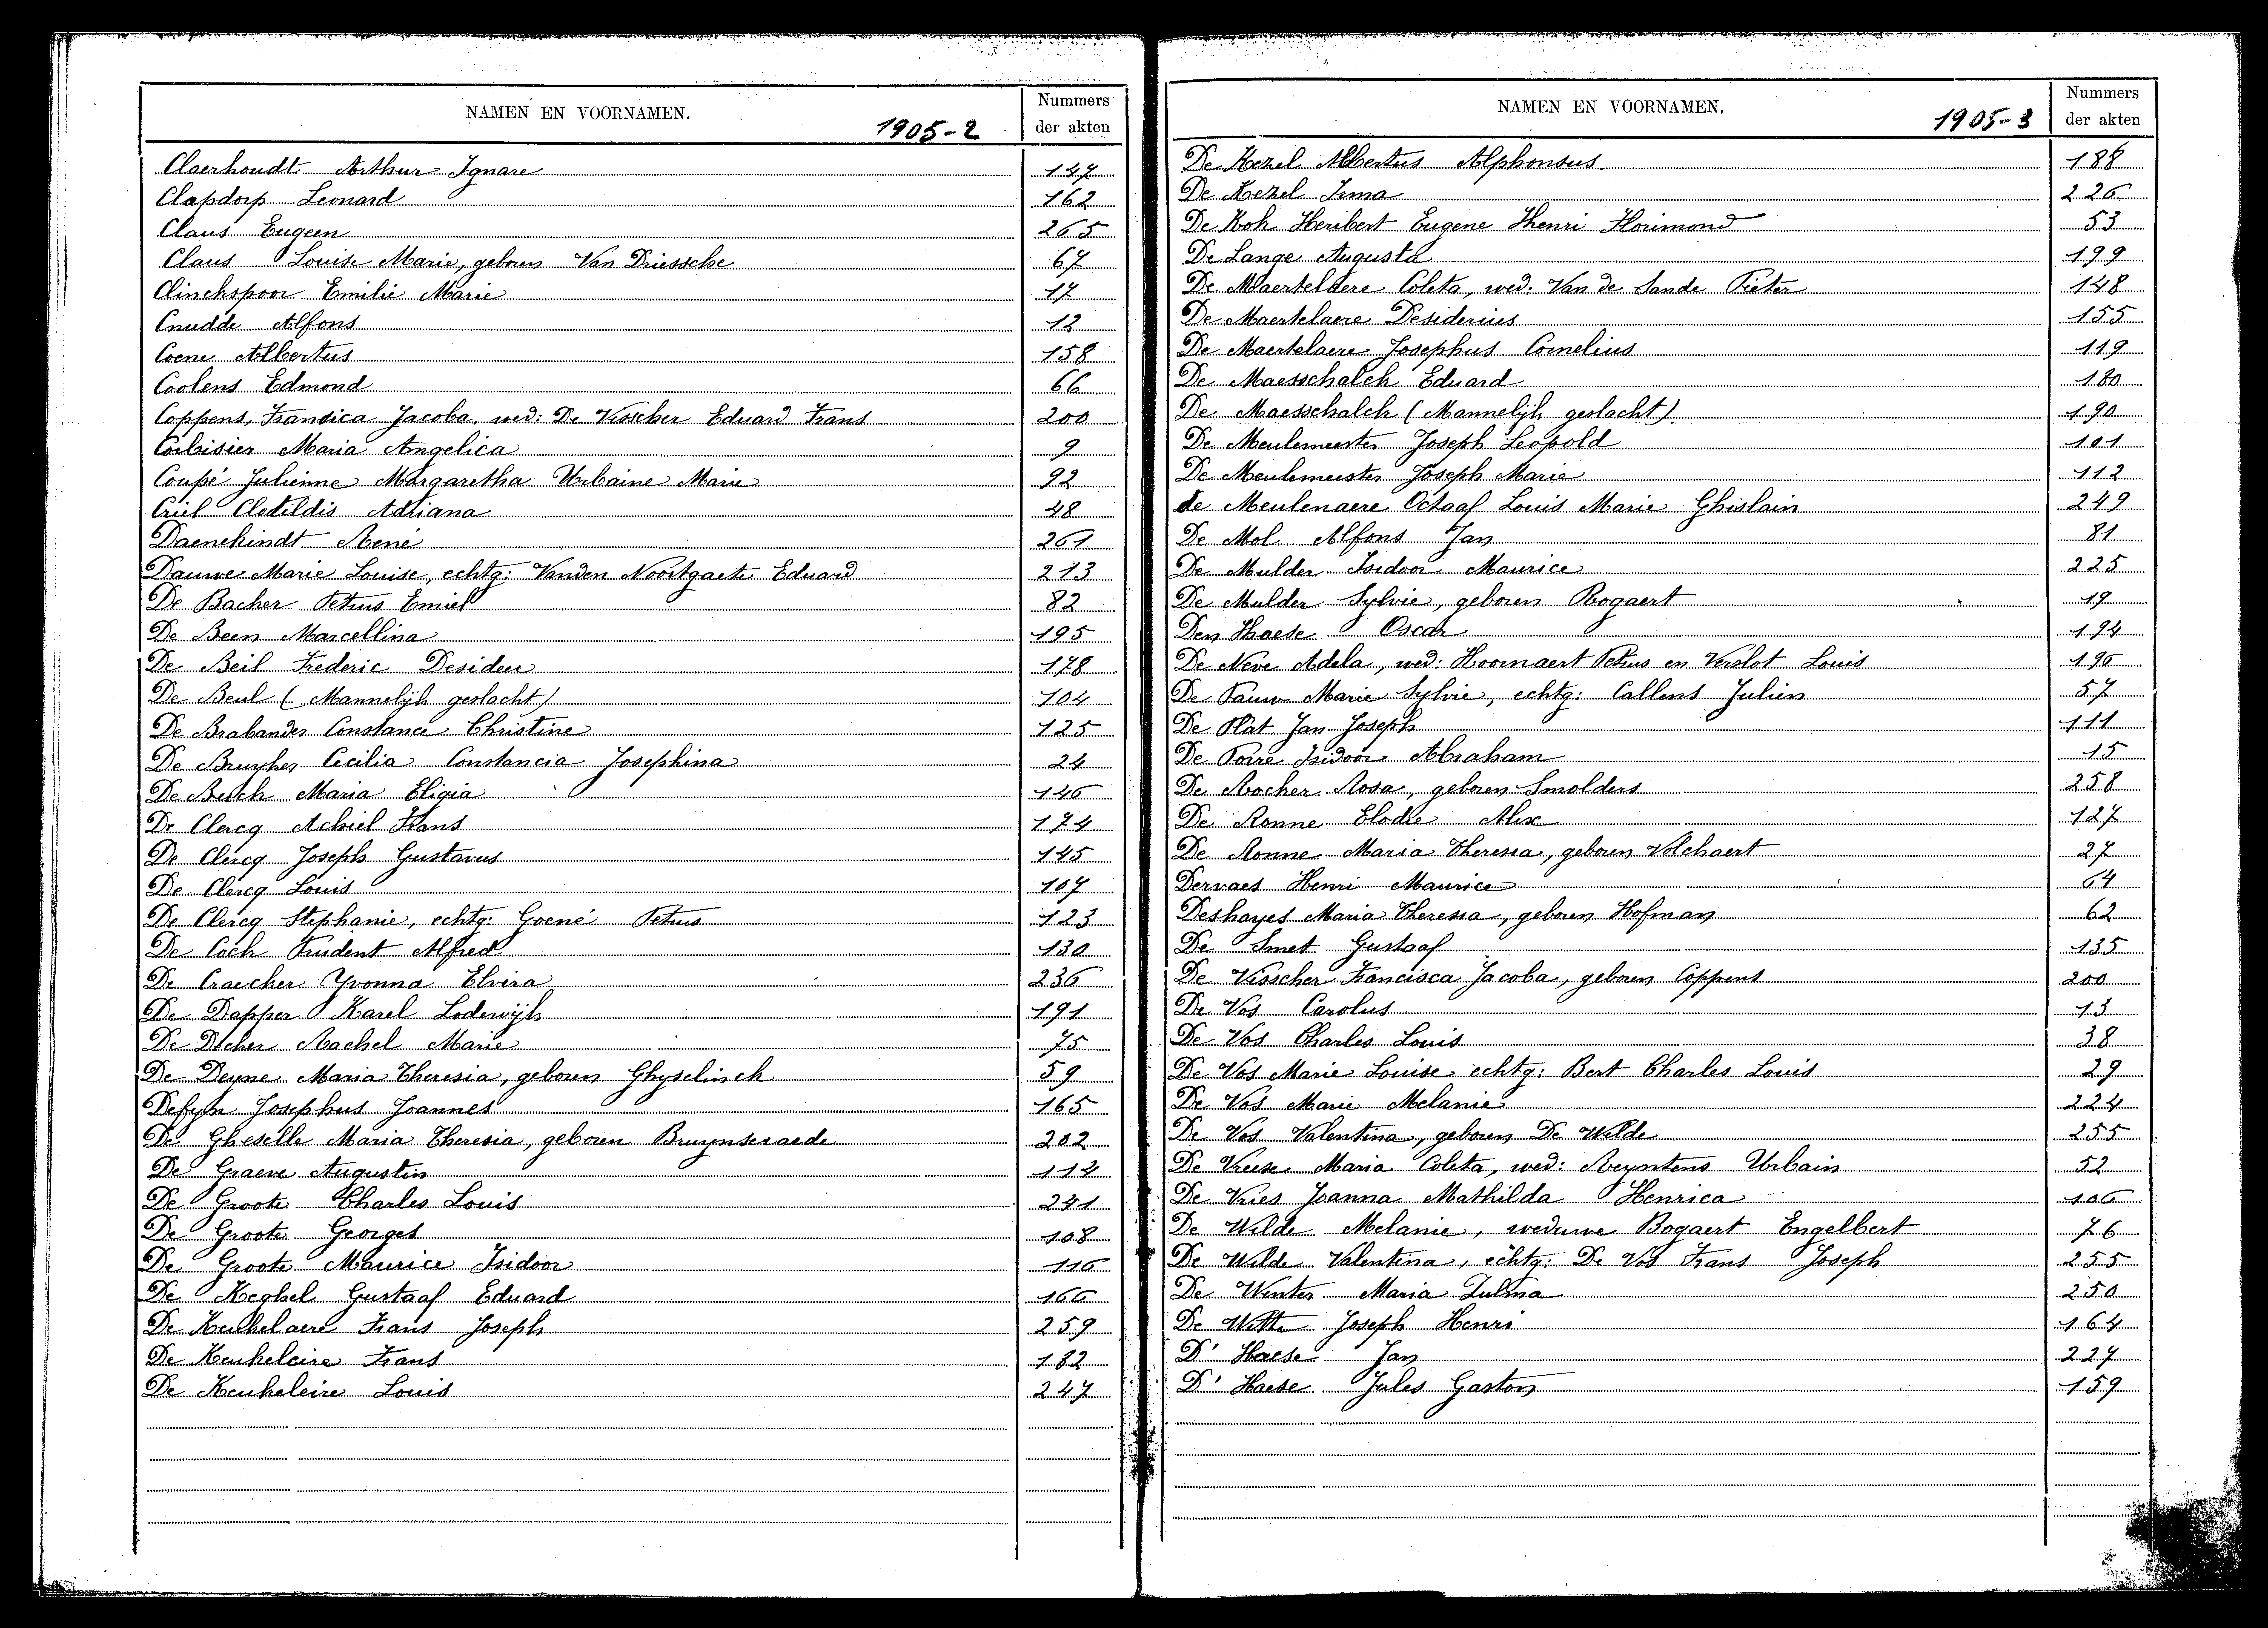 NAMEN EN VOORNAMEN. 1905-2 Nummers der akten
Claerhoudt Arthur Ignare 147
Clapdorp Leonard 162
Claus Eugeen 265
Claus Louise Marie, geboren Van Driessche 67
Clinckspoor Emilie Marie 17
Cnudde Alfons 12
Coene Albertus 158
Coolens Edmond 66
Coppens, Francica Jacoba, wed: De Visscher Eduard Frans 200
Corbisier Maria Angelica 9
Coupé Julienne Margaretha Urbaine Marie 92
Criel Clotildis Adriana 48
Daenekindt René 261
Dauwe Marie Louise, echtg: Vanden Noortgaete Eduard 213
De Backer Petrus Emiel 82
De Been Marcellina 195
De Beil Frederic Desideer 178
De Beul (Mannelijk geslacht) 104
De Brabander Constance Christine 125
De Bruyker Cecilia Constancia Josephina 24
De Maria Eligia 146
De Clercq Achiel Frans 174
De Clercq Joseph Gustavus 145
De Clercq Louis 107
De Clercq Stephanie, echtg: Goené Petrus 123
De Cock Prudent Alfred 130
De Craecker Yvonna Elvira 236
De Dapper Karel Lodewijk 191
De Decker Rachel Marie 75
De Deyne Maria Theresia, geboren Ghyselinck 59
Defyn Josephus Joannes 165
De Gheselle Maria Theresia, geboren Bruynseraede 202
De Graeve Augustin 112
De Groote Charles Louis 241
De Groote Georges 108
De Groote Maurice Isidoor 116
De Keghel Gustaaf Eduard 166
De Keukelaere Frans Joseph 259
De Keukeleire Frans 182
De Keukeleire Louis 247
NAMEN EN VOORNAMEN. 1905-3 Nummers der akten
De Kezel Albertus Alphonsus. 188
De Kezel Irma 226
De Kok Heribert Eugene Henri Florimond 53
De Lange Augusta 199
De Maertelaere Coleta, wed: Van de Sande Pieter 148
De Maertelaere Desiderius 155
De Maertelaere Josephus Cornelius 119
De Maesschalck Eduard 180
De Maesschalck (Mannelijk geslacht). 190
De Meulemeester Joseph Leopold 101
De Meulemeester Joseph Marie 112
de Meulenaere Octaaf Louis Marie Ghislain 249
De Mol Alfons Jan 81
De Mulder Isidoor Maurice 225
De Mulder Sylvie, geboren Bogaert 19
Den Haese Oscar 194
De Neve Adela, wed: Hoornaert Petrus en Verslot Louis 196
De Pauw Marie Sylvie, echtg: Callens Julien 57
De Plat Jan Joseph 111
De Poire Isidoor Abraham 15
De Rocker Rosa, geboren Smolders 258
De Ronne Elodie Alix 127
De Ronne Maria Theresia, geboren Volckaert 27
Dervaes Henri Maurice 64
Deshayes Maria Theresia, geboren Hofman 62
De Smet Gustaaf 135
De Visscher Francisca Jacoba, geboren Coppens 200
De Vos Carolus 13
De Vos Charles Louis 38
De Vos Marie Louise echtg: Bert Charles Louis 29
De Vos Marie Melanie 224
De Vos Valentina, geboren De Wilde 255
De Vreese Maria Coleta, wed: Reyntens Urbain 52
De Vries Joanna Mathilda Henrica 106
De Wilde Melanie, weduwe Bogaert Engelbert 76
De Wilde Valentina, echtg: De Vos Frans Joseph 255
De Winter Maria Zulma 250
De Witte Joseph Henri 164
D' Haese Jan 227
D' Haese Jules Gaston 159